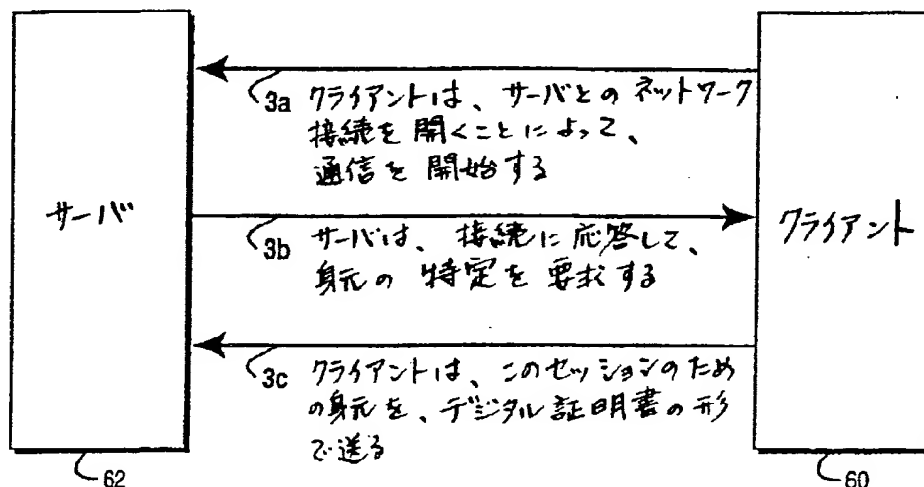 3a クライアントは、サーバとのネットワーク
接続を開くことによって、
通信を開始する
サーバ
クライアント
3b サーバは、接続に応答して、
身元の特定を要求する
3c クライアントは、このセッションのため
の身元を、デジタル証明書の形
で送る
62
60